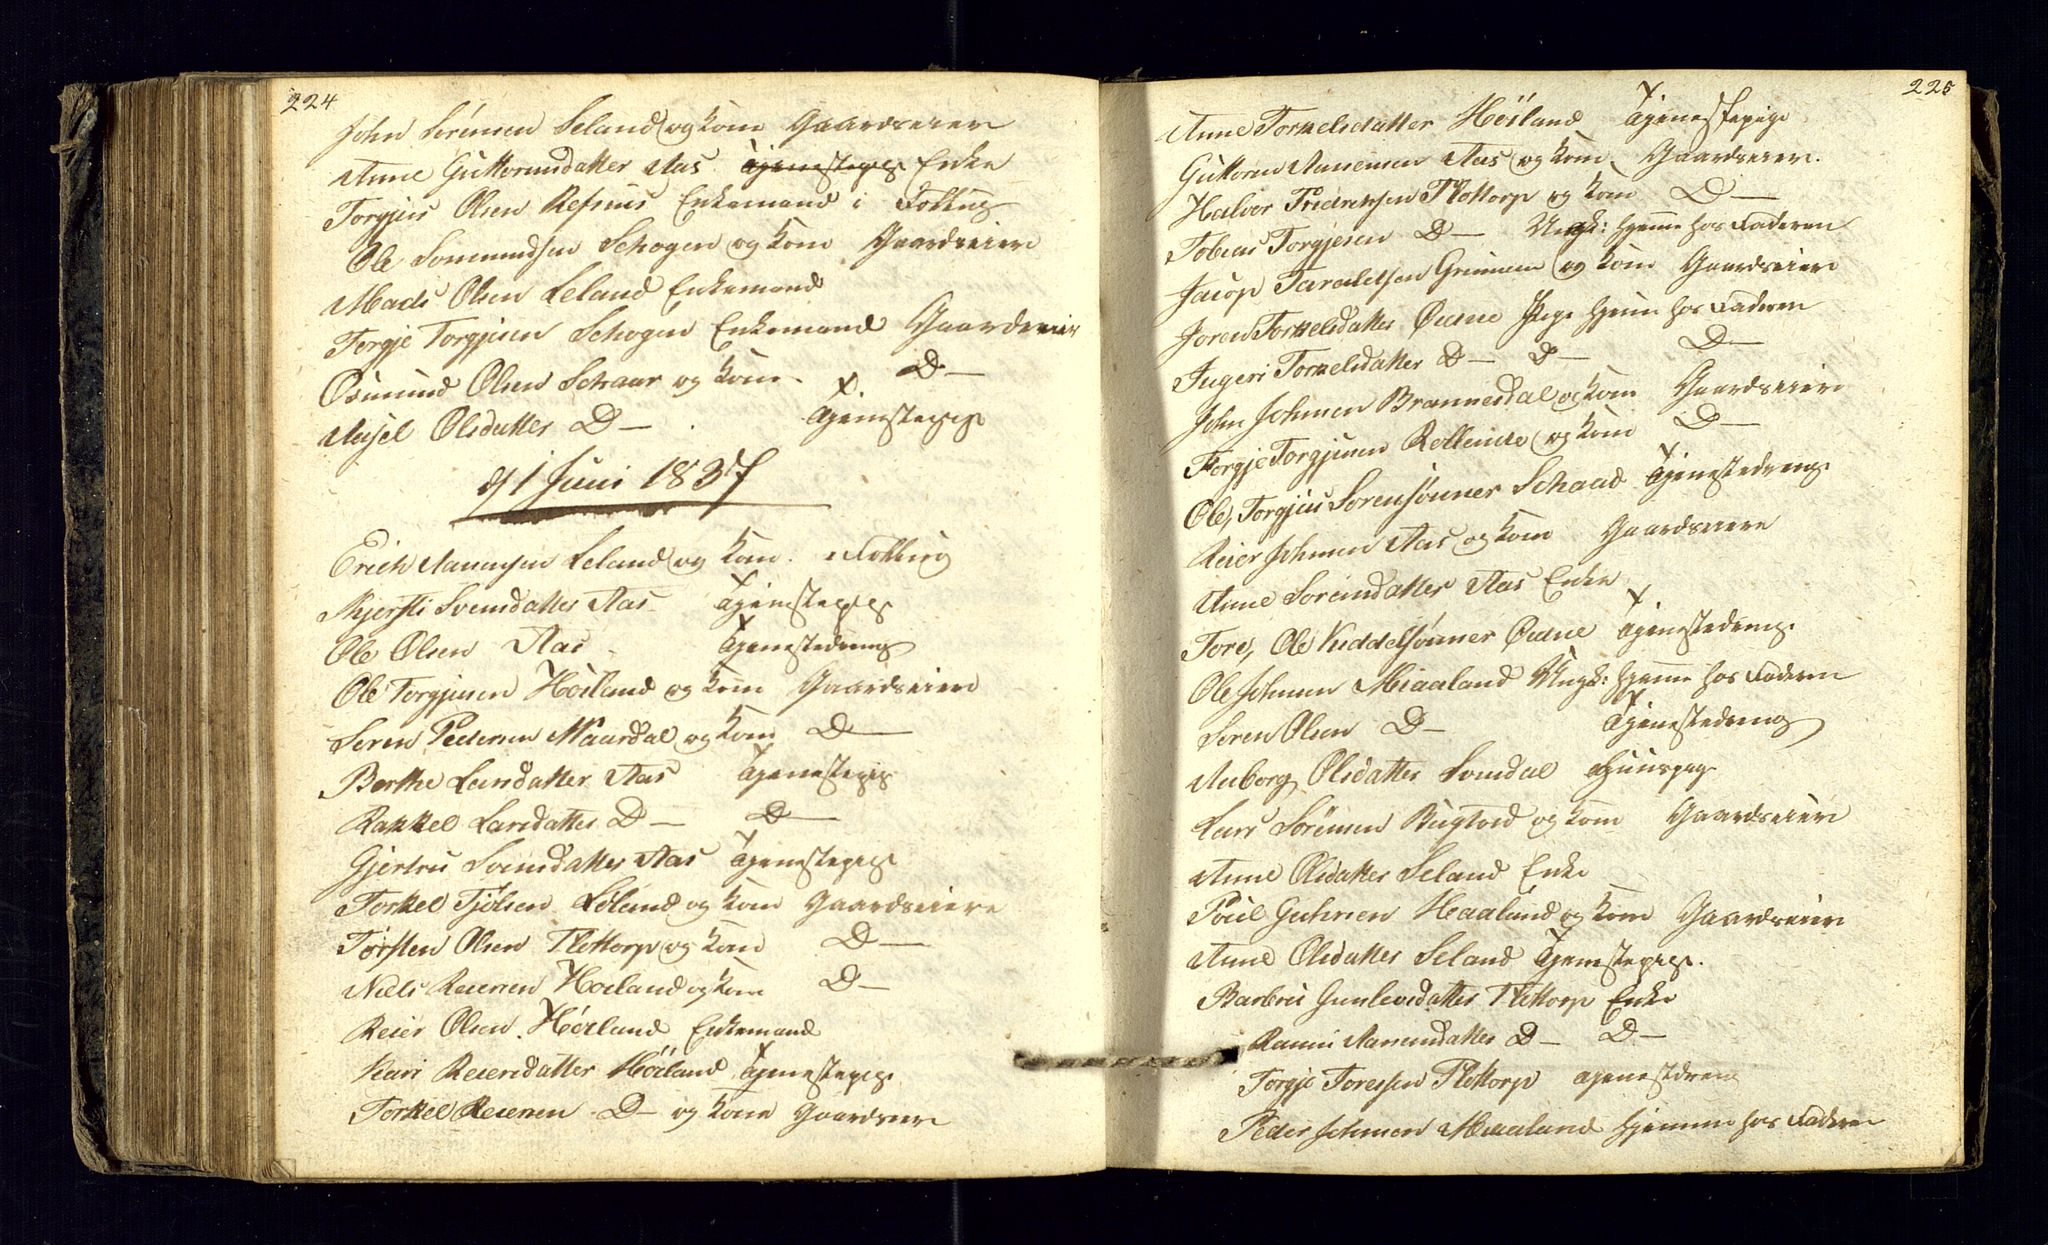 224
John Sörensen Seland og Kone Gaardseier
Anne Guttormsdatter Aas Tjenestepige Enke
Torgjus Olsen Refsnis Enkemand i Folkug
Ole Sommundsen Schogen og Kone Gaardseiere
Mads Olsen Leland Enkemand
Torgje Torgjusen Schogen Enkemand Gaardseier
Osmund Olsen Schaar og Kone D—
Aasel Olsdatter D— Tjenestepige
d 1 Juni 1837
Erich Aanensen Leland og Kone. Folkug
Kjersti Svensdatter Aas Tjenestepige
Ole Olsen Aas Tjenestedreng
Ole Torgjusen Höiland og Kone Gaardseiere
Søren Pedersen Maardal og Kone D—
Berthe Larsdatter Aas Tjenestepige
Rakkel Larsdatter D— D—
Gjertru Svensdatter Aas Tjenestepige
Torkel Tjölsen Leland og Kone Gaardseiere
Torsten Olsen Flottorp og Kone D—
Niels Reiersen Hoiland og Kone D—
Reier Olsen Höiland Enkemand
Kari Reiersdatter Höiland Tjenestepige
Torkel Reiersen D— og Kone Gaardseier
225
Anne Torkelsdatter Höiland Tjenestepige
Guttorm Aanensen Aas og Kone Gaardseiere.
Halvor Fredriksen Flottorp og Kone D—
Tobias Torgjesen D— Ungk: hjemme hos Faderen
Jacop Taraldsen Grimem og Kone Gaardseiere
Joren Torkelsdatter Øidne Pige hjeme hos Faderen
Ingeri Torkelsdatter D— D— D—
John Johnsen Brannesdal og Kone Gaardseiere
Torgje Torgjusen og Kone D—
Ole, Torgjus Sorensönner Schaad Tjenestedreng
Reier Johnsen Aas og Kone Gaardseiere
Anne Sorensdatter Aas Enke
Tore, Ole Kiddelsönner Øidne Tjenestedreng
Ole Johnsen Miaaland Ungk: hjemme hos Faderen
Søren Olsen D— Tjenestedreng
Aaborg Olsdatter Somdal Huuspige
Lars Sörensen Bugtod og Kone Gaardseiere
Anne Olsdatter Seland Enke
Poul Guhnsen Haaland og Kone Gaardseiere
Anne Olsdatter Seland Tjenestepige.
Barbru Gunlevsdatter Flottorp Enke
Ranni Aanensdatter D— D—
Torgje Toressen Flottorp Tjenestdreng
Peder Johnsen Miaaland hjemme hos Faderen